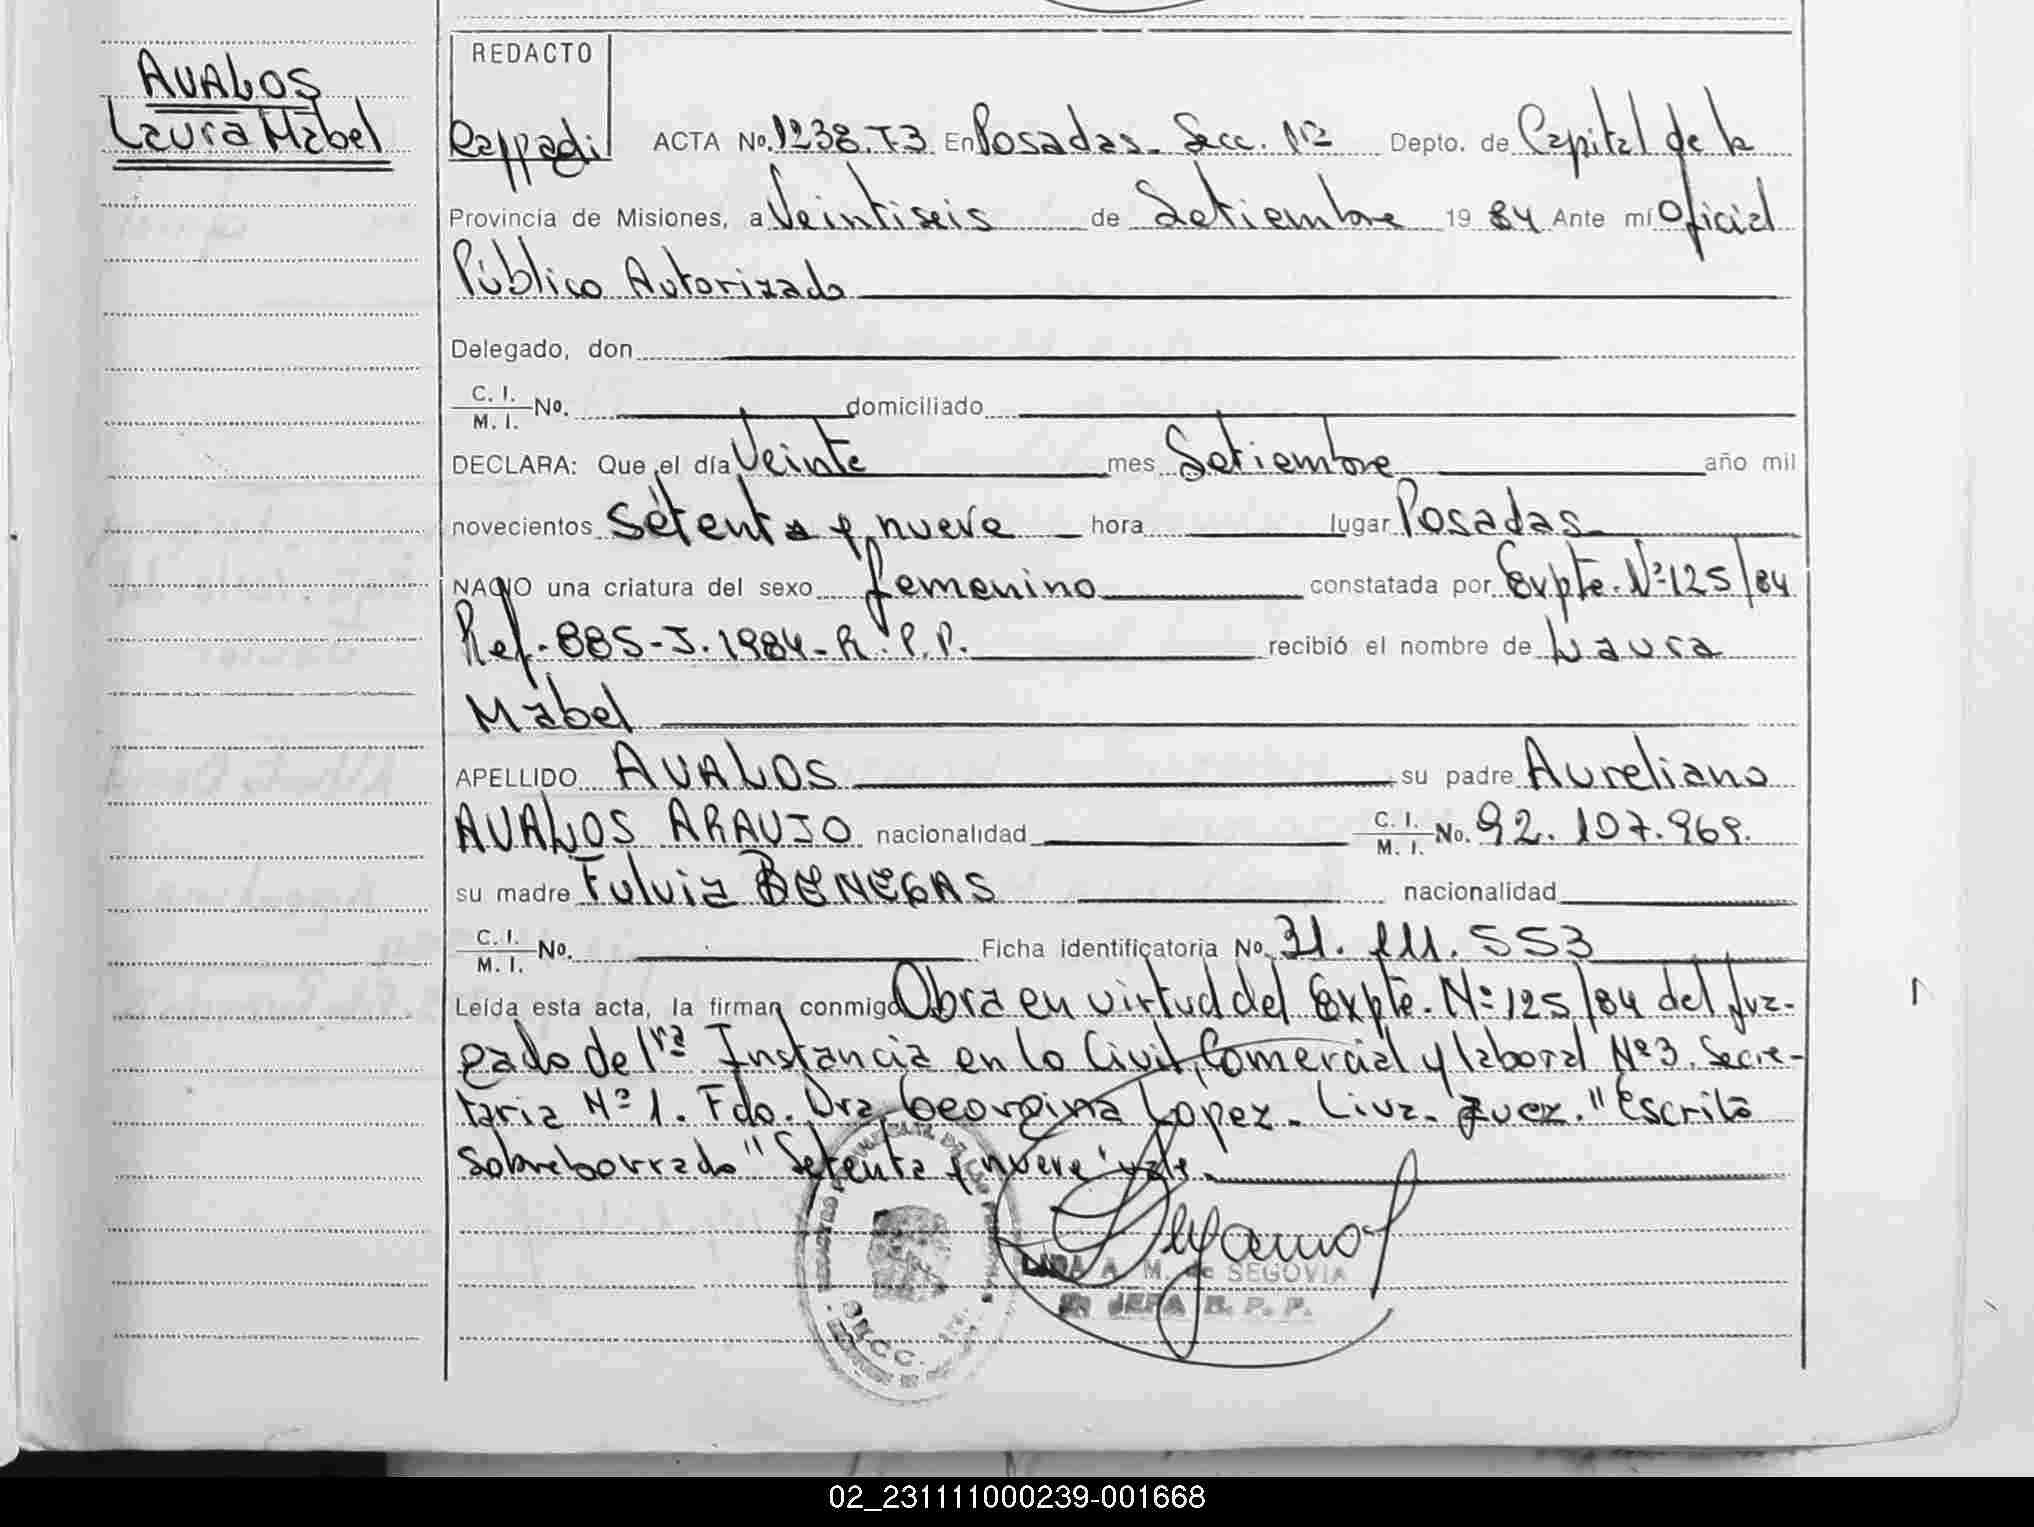 AVALOS
Laura Mabel
REDACTO
Rappadi
ACTA No. 1238.T3 En Posadas - Secc. 1ra Depto. de Capital de la
Provincia de Misiones, a Veintiseis de Setiembre 19 84 Ante mí Oficial
Público Autorizado
Delegado, don
C. I. / M. I. No. domiciliado
DECLARA: Que el día Veinte mes Setiembre año mil
novecientos setenta y nueve hora lugar Posadas
NACIO una criatura del sexo femenino constatada por Expte. Nº 125/84
Ref. 885-J. 1984-R.P.P. recibió el nombre de Laura
Mabel
APELLIDO AVALOS su padre Aureliano
AVALOS ARAUJO nacionalidad C. I. / M. I. No. 92.107.969.
su madre Fulvia BENEGAS nacionalidad
C. I. / M. I. No. Ficha identificatoria No. 31.111.553
Leída esta acta, la firman conmigo Obra en virtud del Expte. Nº 125/84 del Juz-
gado de 1ra Instancia en lo Civil, Comercial y laboral Nº 3. Secre-
taria Nº 1. Fdo. Dra Georgina Lopez - Liva - Juez. "Escrito
sobreborrado" "Setenta y nueve" vale.
A. M. de SEGOVIA
JEFA R. P. P.
02_231111000239-001668